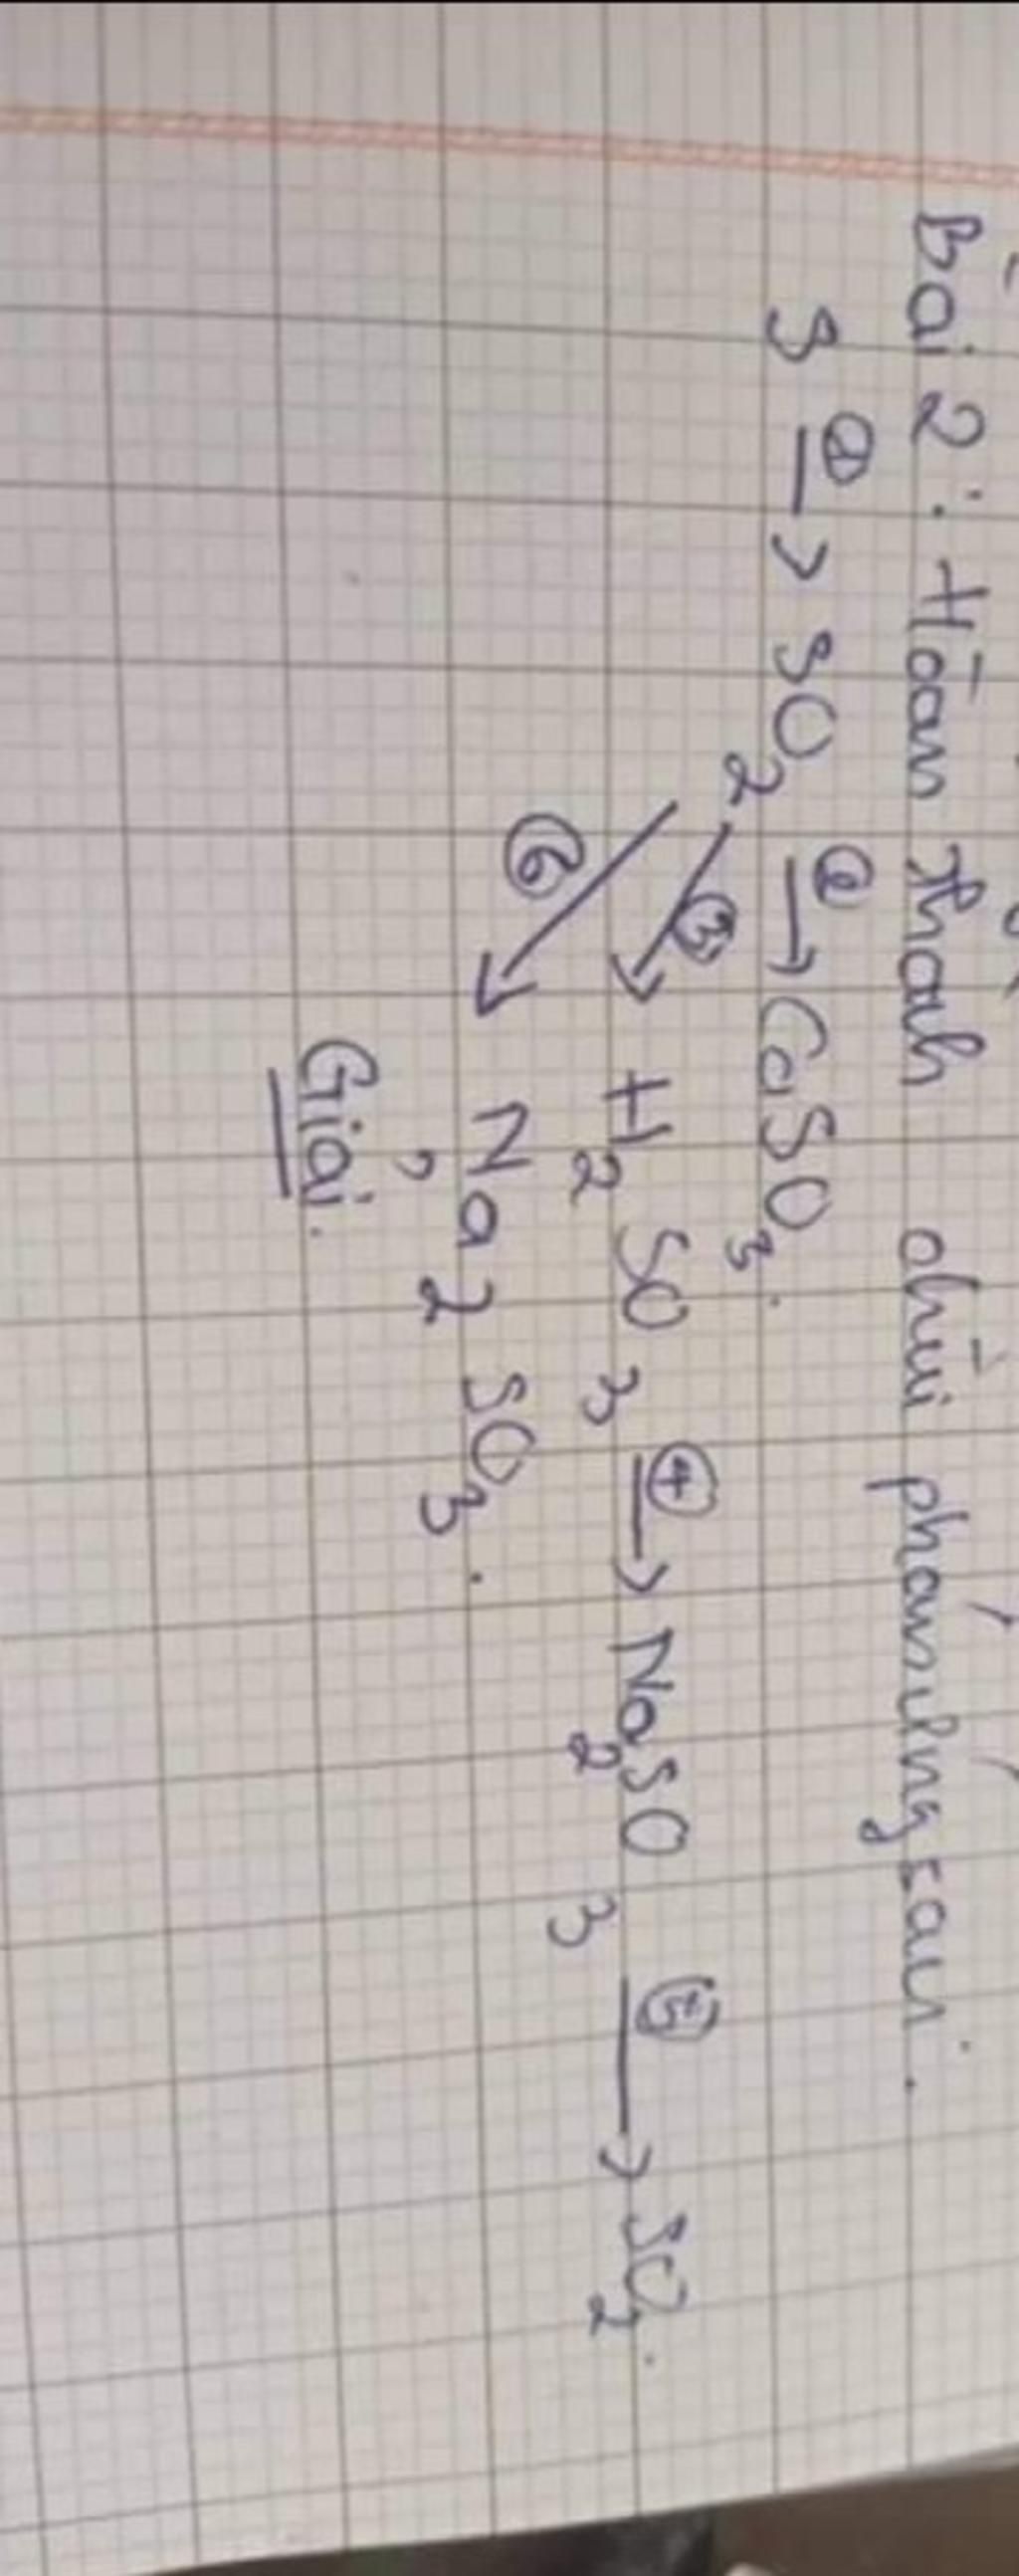 Bài 2: Hoàn thành chuỗi phản ứng sau.
S ①→ SO₂ ②→ CaSO₃.
③→ H₂SO₃ ④→ Na₂SO₃ ⑤→ SO₂.
⑥→ Na₂SO₃.
Giải.